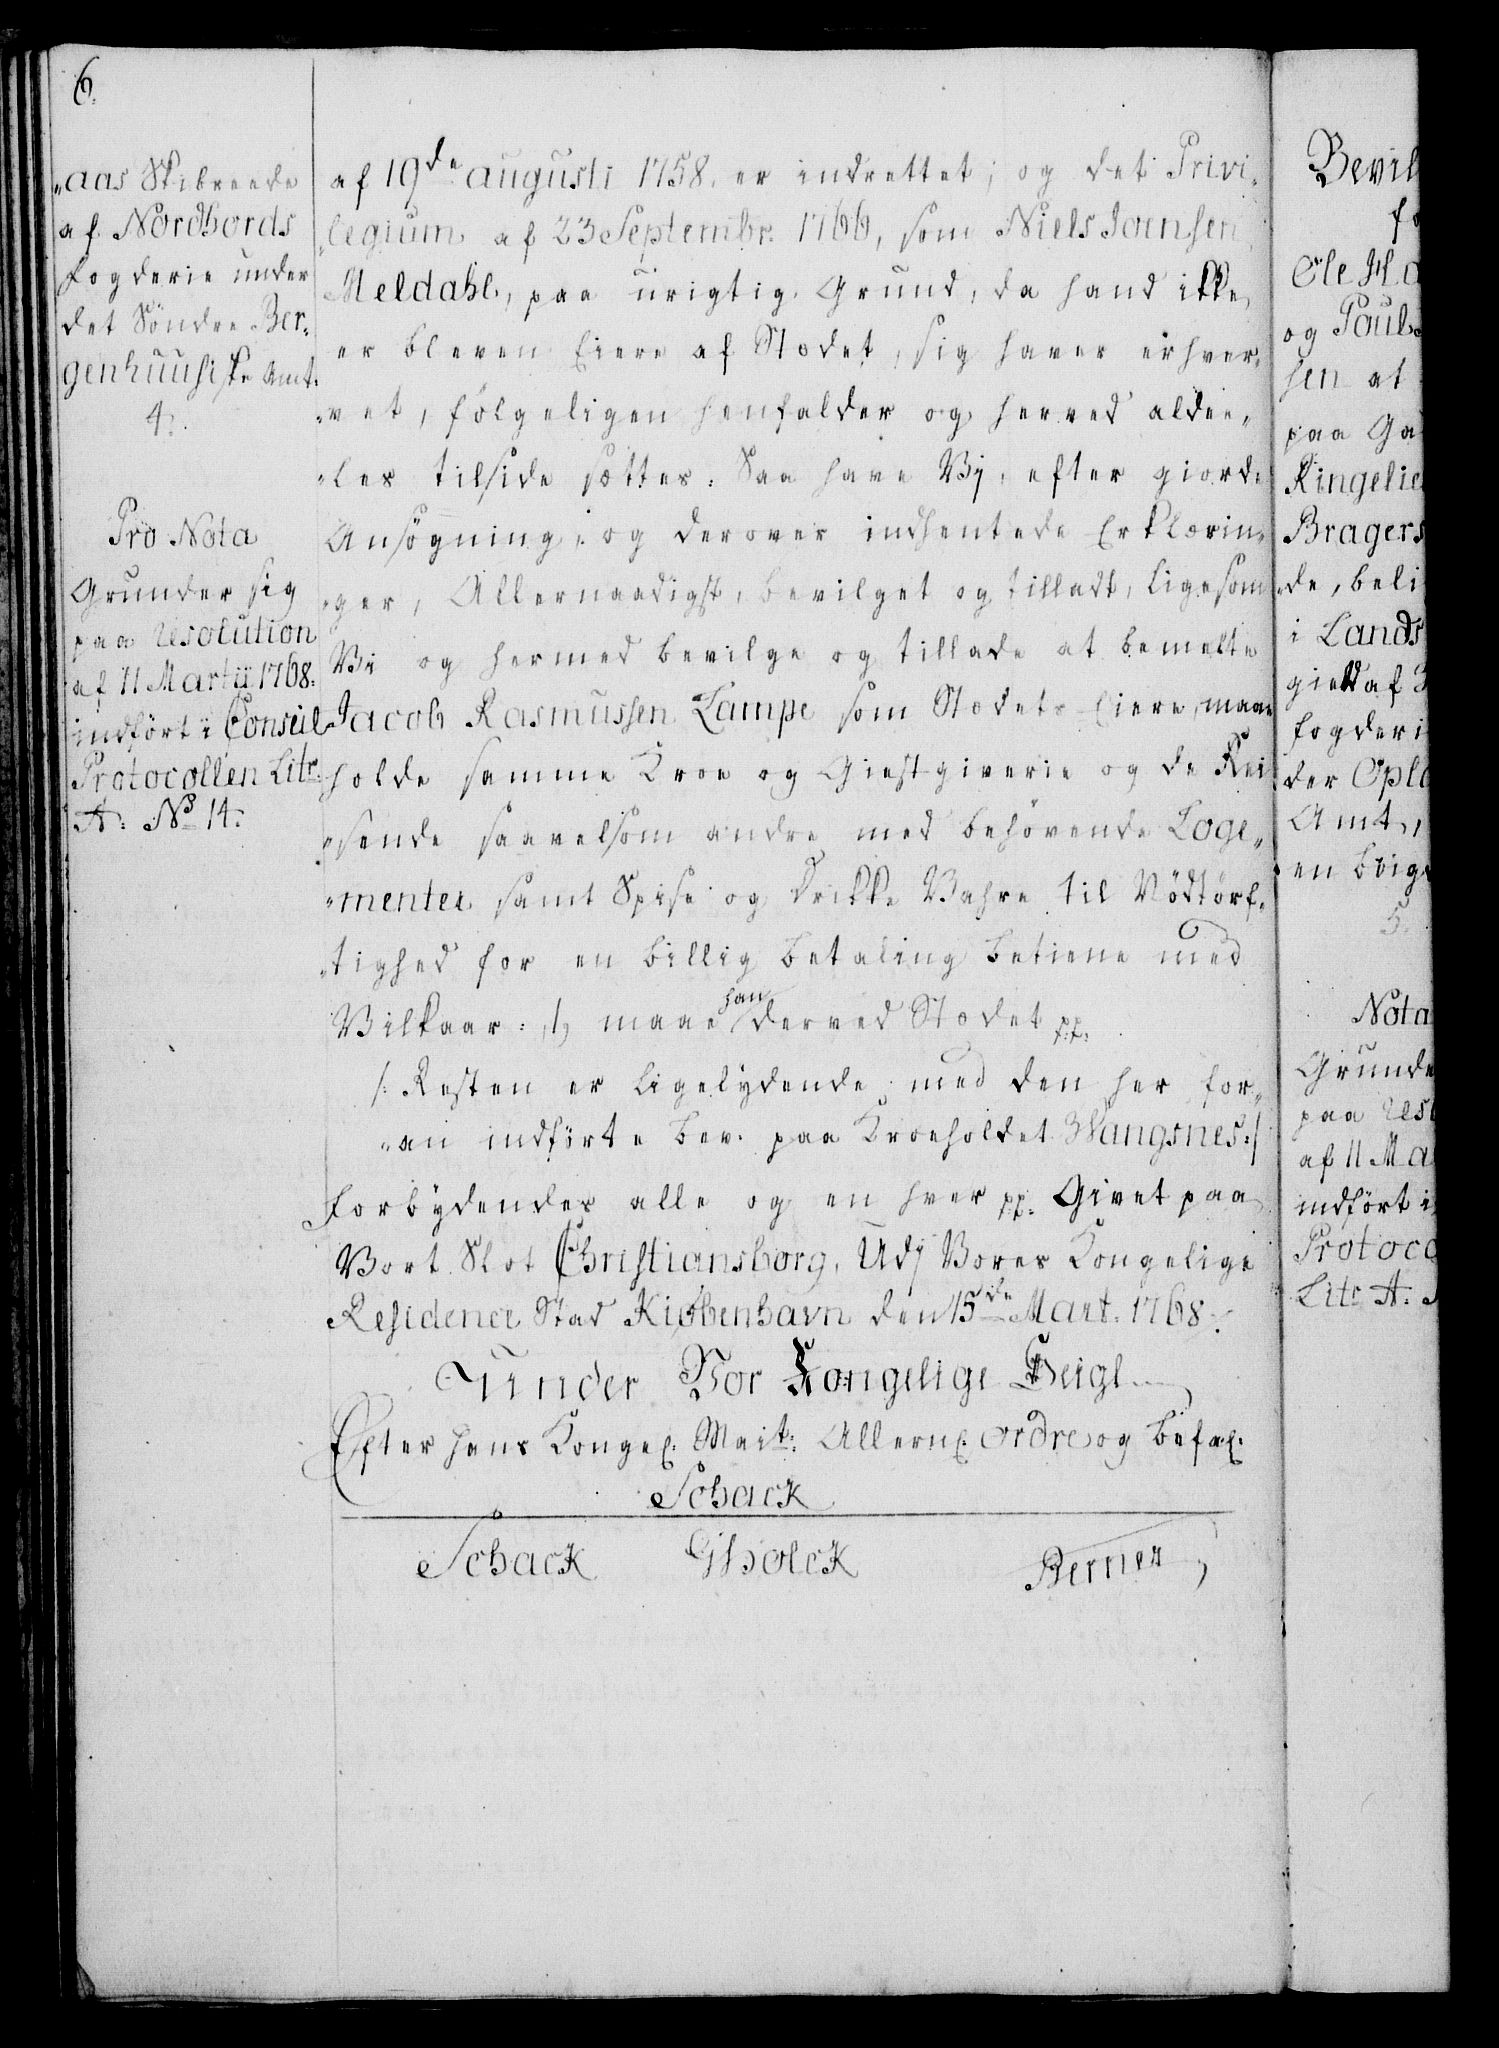 6.
"aas Skibreede
af Nordhords
Fogderie under
det Söndre Ber,
genhuusiske Amt.
4.
Pro Nota
Grunder sig
paa Resolution
af 11 Martii 1768.
indfört i Conseil
Protocollen Litr.
A: No 14.
af 19de augusti 1758. er indrettet; og det Privi,
"legium af 23 Septembr. 1766, som Niels Jansen
Meldahl, paa urigtig Grund, da hand ikke
er bleven Eiere af Stædet, sig haver erhver,
"vet, fölgeligen henfalder og herved aldee,
"les tilside sættes: Saa have Vij, efter giorde
Ansögning, og derover indhentede Erklærin,
"ger, Allernaadigst, bevilget og tilladt, ligesom
Vi og hermed bevilge og tillade at bemelte
Jacob Rasmussen Lampe som Stædets Eiere, maae
holde samme Kroe og Giestgiverie og de Rei
"sende saavelsom andre med behövende Loge,
"menter samt Spise og Drikke Vahre til Nödtörf,
"tighed for en billig betaling betiene med
Vilkaar: 1, maae han derved Stædet pp.
/: Resten er ligelydende med den her for,
"an indförte bev. paa Kroeholdet Wangsnes:/
Forbydendes alle og en hver pp. Givet paa
Vort Slot Christiansborg, Udj Vores Kongelige
Residence Stad Kiøbenhavn den 15de Mart. 1768.
Under Vor Kongelige Seigl
Efter hans Kongel. Mait: Allern. ordre og befal.
Schack
Schack GHolck Berner
Bevil
fo
Ole Ha
og Paul
sen at
paa Ga
Ringelie
Bragers
"de, beli
i Lands
gield af
fogderi
der Opla
Amt,
en böig
5.
Nota
Grunde
paa Res
af 11 Ma
indfört i
Protoco
Litr A.